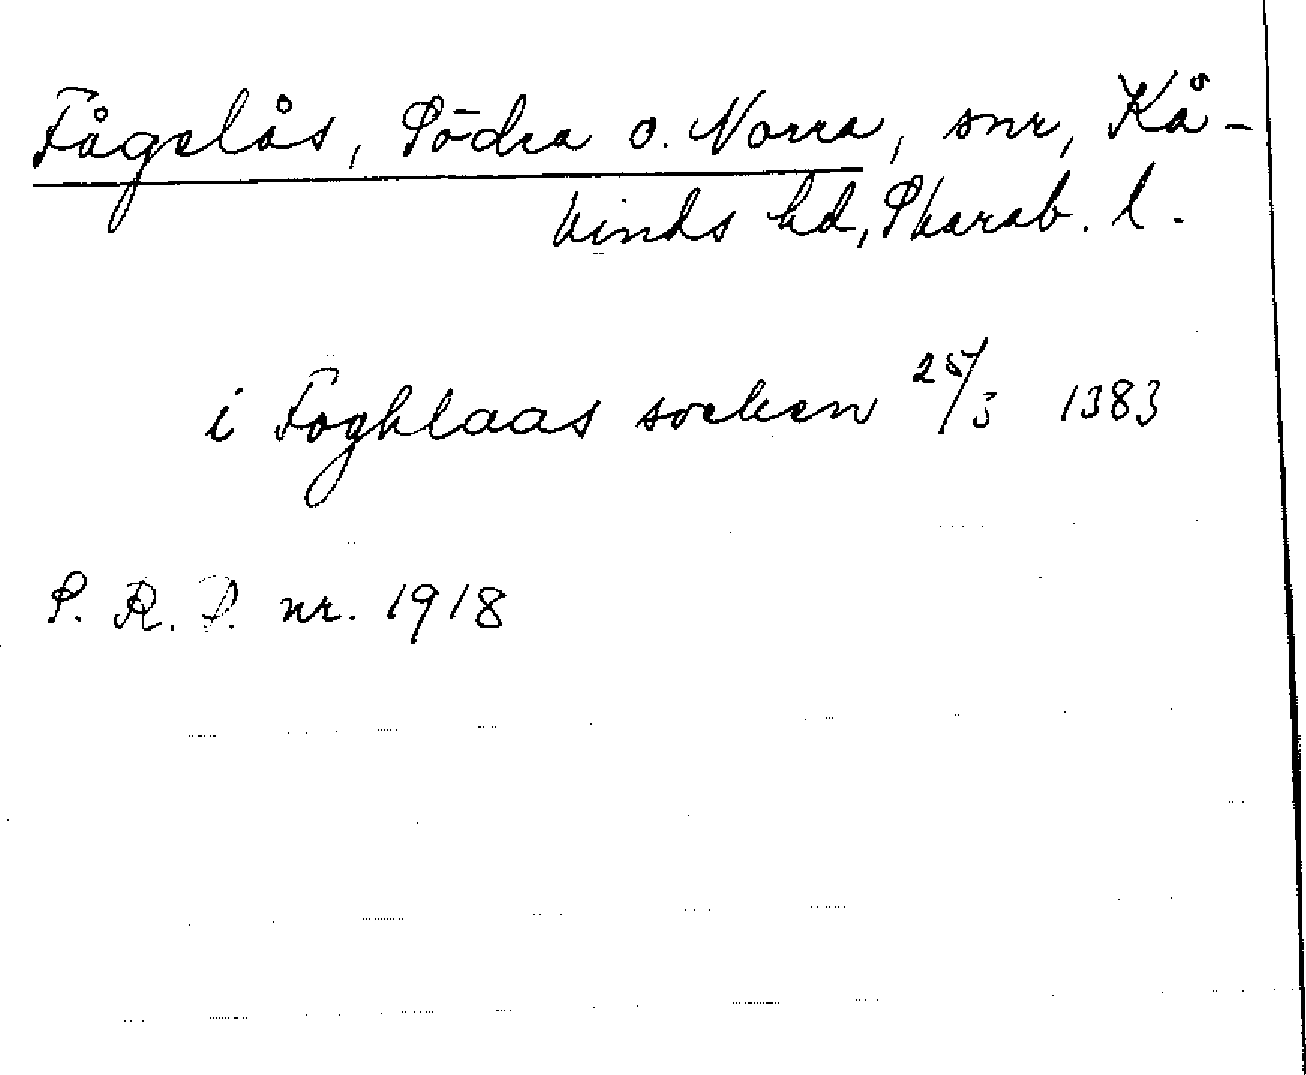 Fågelås, Södra o. Norra, snr, Kå-
kinds hd, Skarab. l.
i Foghlaas socken 25/3 1383
S. R. P. nr. 1918